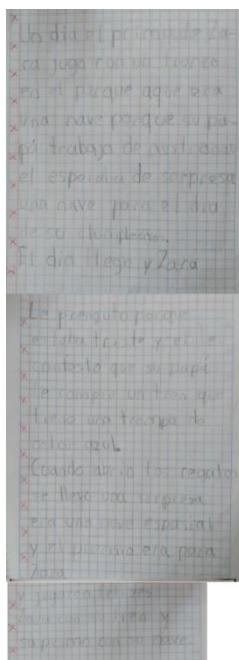 Un día el primo de Za-
ra jugo con un tronco
en el parque aque era
una nave porque su pa-
pá trabaja de austronauta
el esperaba de sorpresa
una nave para el día
de su cumpleaños.
El día llego y Zara
Le pregunto porque
estaba triste y el le
contesto que su papá
le compro un tren que
tiene una trompa de
color azul.
Cuando abrio los regalos
se llevo una sorpresa
era una nave espacial
y el era para
Zara
y jugaron felizes
Zara con su tren y
su primo con su nave.